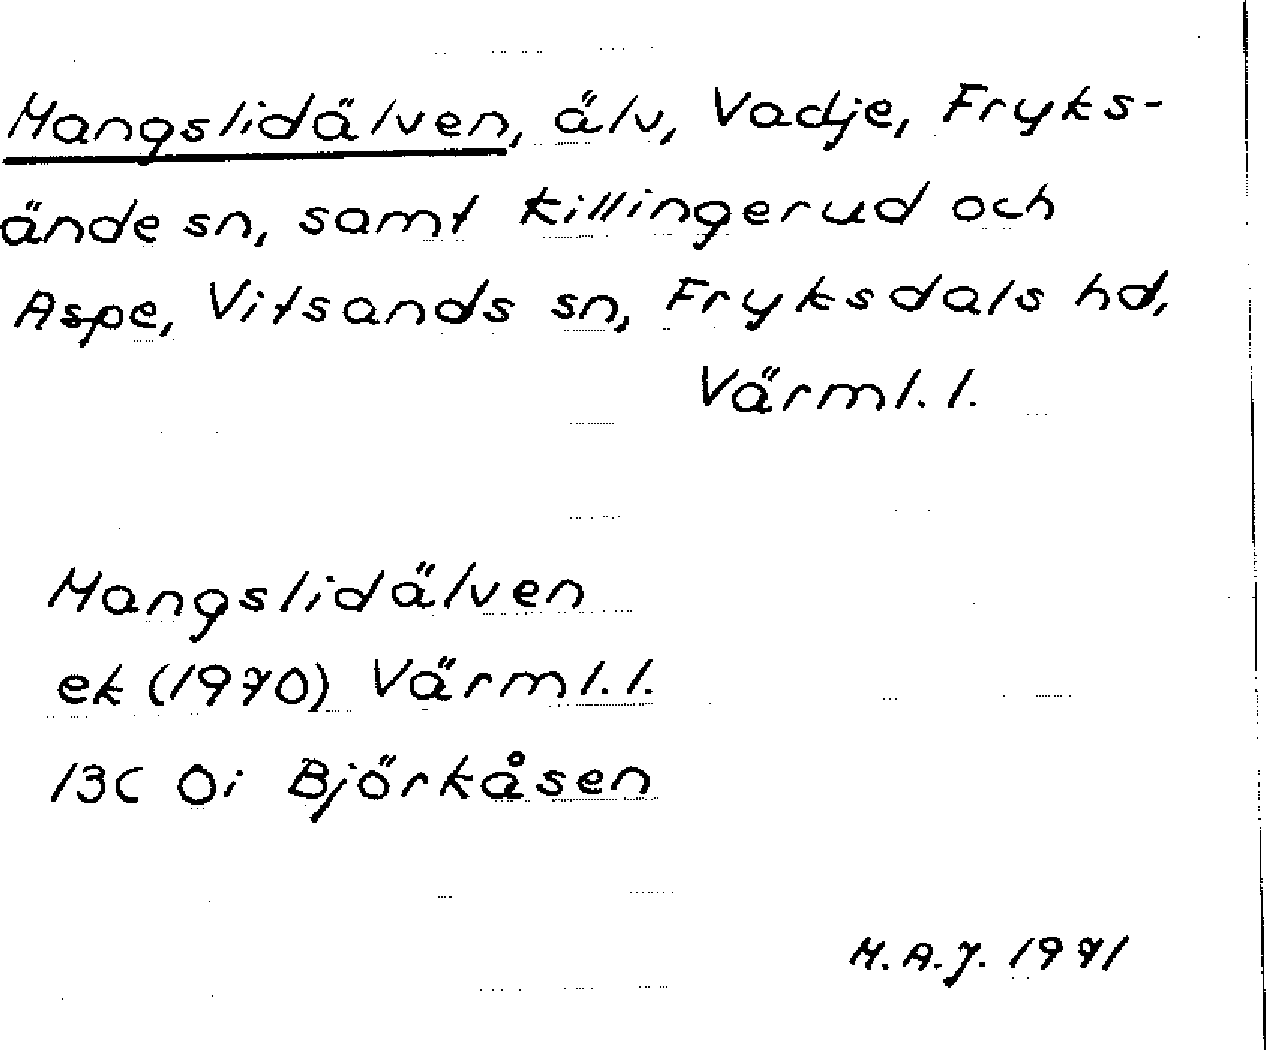 Mangslidälven, älv, Vadje, Fryks-
ände sn, samt Killingerud och
Aspe, Vitsands sn, Fryksdals hd,
Värml. l.
Mangslidälven
ek (1970) Värml. l.
13C 0i Björkåsen
M.A.J. 1971